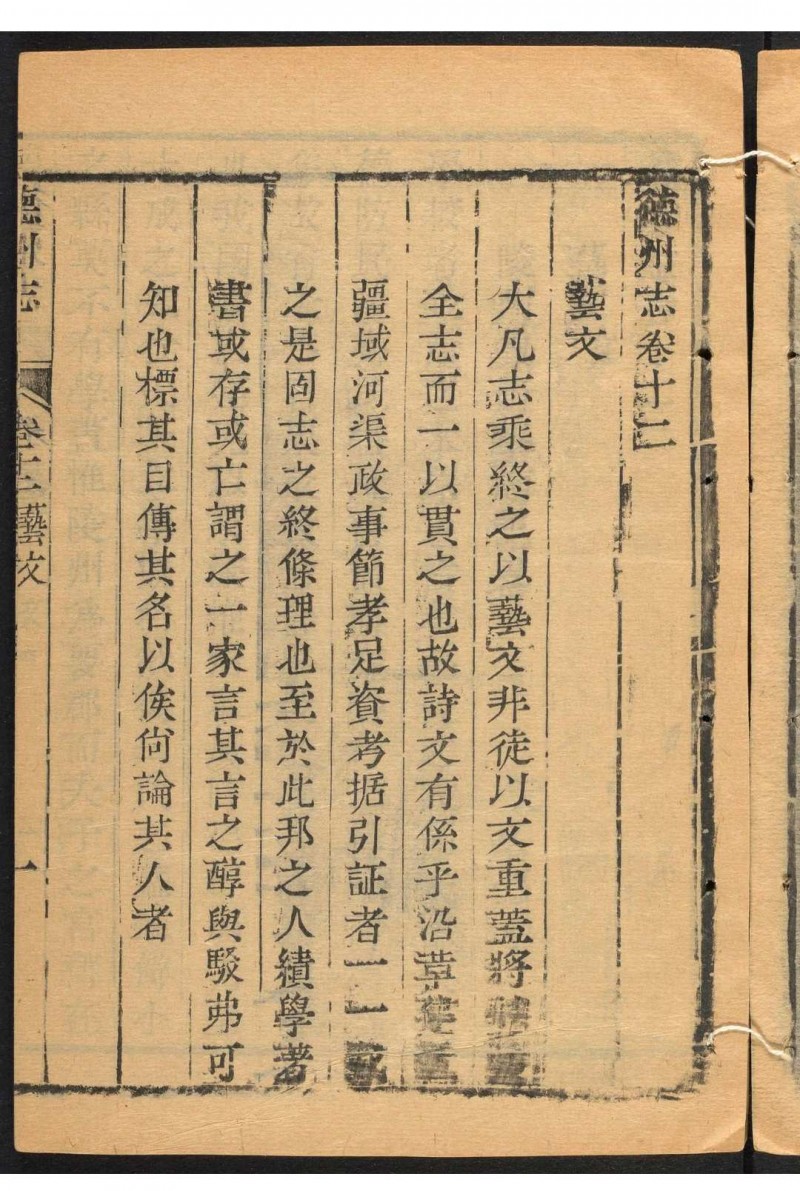 德州志卷十二
藝文
大凡志乘終之以藝文非徒以文重蓋將
全志而一以貫之也故詩文有係乎沿革建置
疆域河渠政事節孝足資考据引証者一一
之是固志之終條理也至於此邦之人績學著
書或存或亡謂之一家言其言之醇與駁弗可
知也標其目傳其名以俟尙論其人者
德州志
卷十二藝文
一